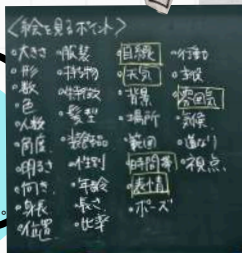 〈絵を見るポイント〉
・大きさ
・形
・数
・色
・人数
・角度
・明るさ
・向き
・身長
・位置
・服装
・持ち物
・髪型
・性別
・年齢
・長さ
・比率
・目線
・天気
・背景
・場所
・範囲
・時間帯
・表情
・ポーズ
・行動
・雰囲気
・気候
・視点